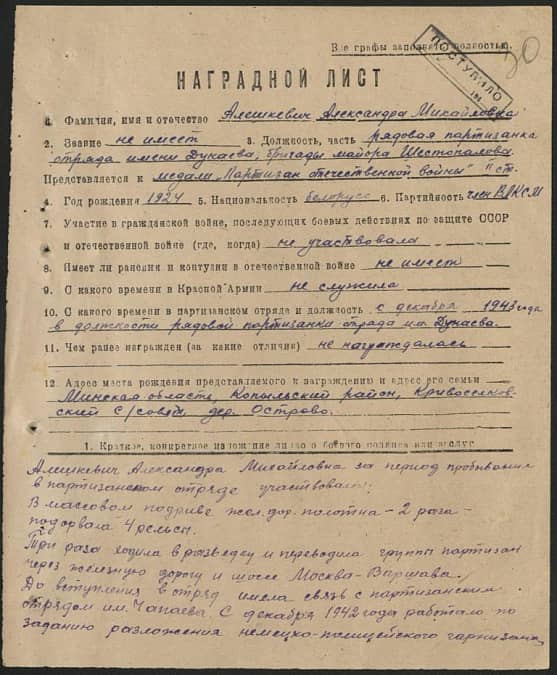 Все графы заполнять полностью.
ПОСТУПИЛО
НАГРАДНОЙ ЛИСТ
1. Фамилия, имя и отчество Алешкевич Александра Михайловна
2. Звание не имеет 3. Должность, часть рядовая партизанка
отряда имени Дунаева, бригады майора Шестопалова.
Представляется к медали „Партизан отечественной войны" II ст.
4. Год рождения 1924 5. Национальность белорусс 6. Партийность член ВЛКСМ
7. Участие в гражданской войне, последующих боевых действиях по защите СССР
и отечественной войне (где, когда) не участвовала
8. Имеет ли ранения и контузии в отечественной войне не имеет
9. С какого времени в Красной Армии не служила
10. С какого времени в партизанском отряде и должность с декабря 1943 года
в должности рядовой партизанка отряда им. Дунаева.
11. Чем ранее награжден (за какие отличия) не награждалась
12. Адрес места рождения представляемого к награждению и адрес его семьи
Минская область, Копыльский район,
ский с/совет, дер. Острово.
1. Краткое, конкретное изложение личного боевого подвига или заслуг
Алешкевич Александра Михайловна за период пребывания
в партизанском отряде участвовала:
В массовом подриве жел.дор. полотна – 2 раза –
подорвала 4 рельсы.
Три раза ходила в разведку и переводила группы партизан
через железную дорогу и шоссе Москва-Варшава.
До вступления в отряд имела связь с партизанским
отрядом им. Чапаева. С декабря 1942 года работала по
заданию разложения немецко-полицейского гарнизона,